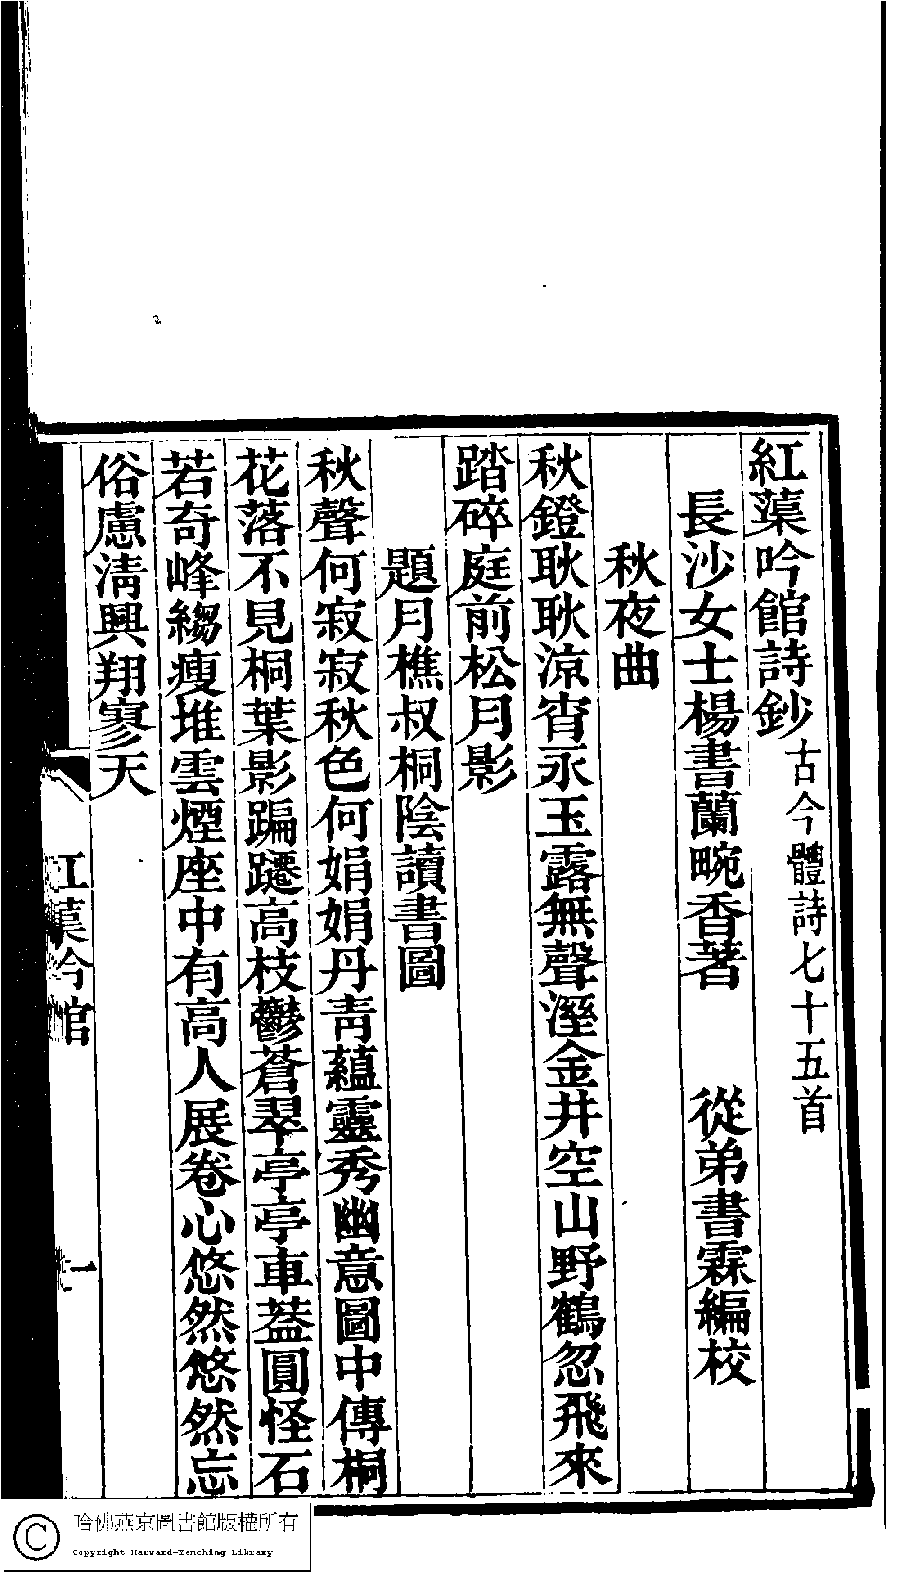 紅蕖吟館詩鈔 古今體詩七十五首
長沙女士楊書蘭畹香著 從弟書霖編校
秋夜曲
秋鐙耿耿涼宵永玉露無聲溼金井空山野鶴忽飛來
踏碎庭前松月影
題月樵叔桐陰讀書圖
秋聲何寂寂秋色何娟娟丹青蘊靈秀幽意圖中傳桐
花落不見桐葉影蹁躚高枝鬱蒼翠亭亭車蓋圓怪石
若奇峰縐瘦堆雲煙座中有高人展卷心悠然悠然忘
俗慮清興翔寥天
紅蕖吟館
一
哈佛燕京圖書館版權所有
Copyright Harvard-Yenching Library